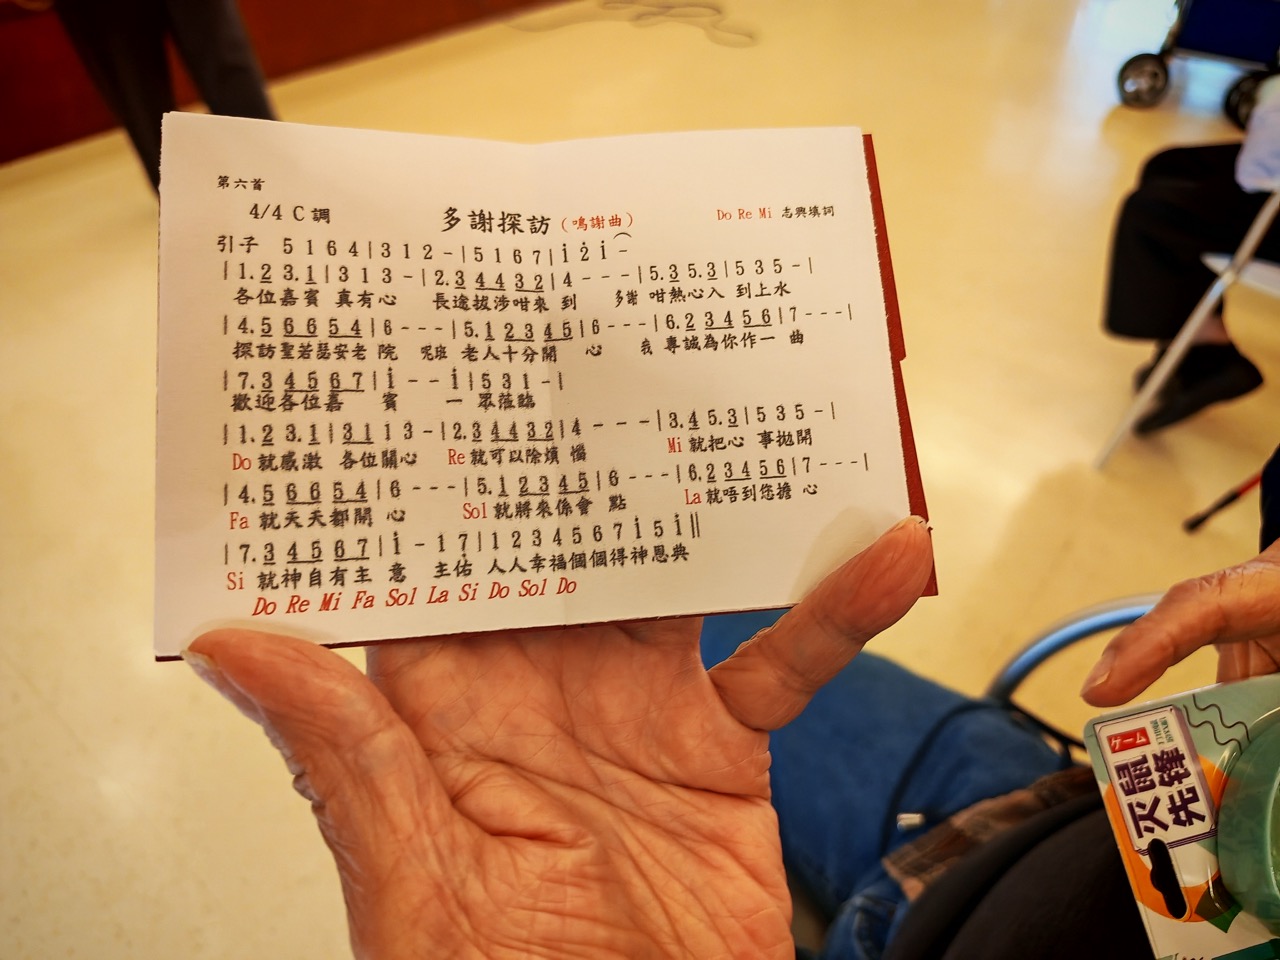 第六首
4/4 C 調 多謝探訪 (鳴謝曲) Do Re Mi 志興填詞
引子 5 1 6 4 | 3 1 2 - | 5 1 6 7 | i̇ 2̇ i̇ -
| 1. 2 3. 1 | 3 1 3 - | 2. 3 4 4 3 2 | 4 - - - | 5. 3 5. 3 | 5 3 5 - |
各位嘉賓 真有心 長途拔涉咁來 到 多謝 咁熱心入 到上水
| 4. 5 6 6 5 4 | 6 - - - | 5. 1 2 3 4 5 | 6 - - - | 6. 2 3 4 5 6 | 7 - - - |
探訪聖若瑟安老 院 呢班 老人十分開 心 我 專誠為你作一 曲
| 7. 3 4 5 6 7 | i̇ - - i̇ | 5 3 1 - |
歡迎各位嘉 賓 一 眾蒞臨
| 1. 2 3. 1 | 3 1 1 3 - | 2. 3 4 4 3 2 | 4 - - - | 3. 4 5. 3 | 5 3 5 - |
Do 就感激 各位關心 Re 就可以除煩 惱 Mi 就把心 事拋開
| 4. 5 6 6 5 4 | 6 - - - | 5. 1 2 3 4 5 | 6 - - - | 6. 2 3 4 5 6 | 7 - - - |
Fa 就天天都開 心 Sol 就將來係會 點 La 就唔到您擔 心
| 7. 3 4 5 6 7 | i̇ - 1 7̣ | 1 2 3 4 5 6 7 i̇ 5 i̇ ||
Si 就神自有主 意 主佑 人人幸福個個得神恩典
Do Re Mi Fa Sol La Si Do Sol Do
ゲーム
灭鼠
先锋